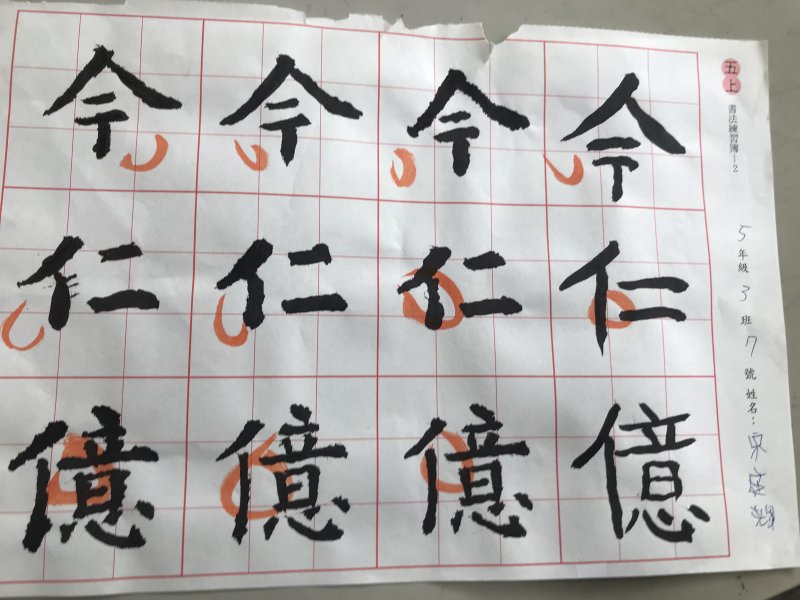 五上
書法練習簿－2
5年級3班7號姓名：
今仁億
今仁億
今仁億
今仁億